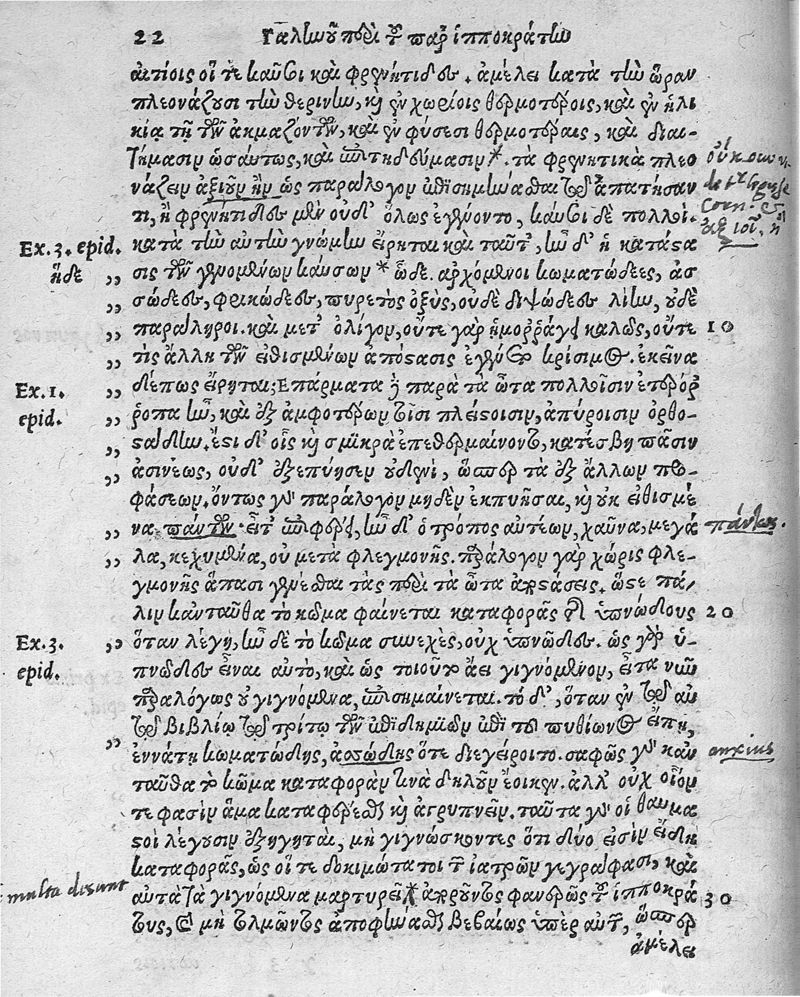 22 Γαληνοῦ περὶ τοῦ παρ' ἱπποκράτην
ακτίοις οἵ τε καῦσοι καὶ φρενήτιδες. ἀμέλει κατὰ τὴν ὥραν
πλεονάζουσι τὴν θερινὴν, καὶ ἐν χωρίοις θερμοτέροις, καὶ ἐν ἡλι
κίᾳ τῇ τῶν ἀκμαζόντων, καὶ ἐν φύσεσι θερμοτέραις, καὶ διαι-
τήμασιν ὡσαύτως, καὶ ἐπιτηδεύμασιν* . τὰ φρενητικὰ πλεο
νάζειν ἀξιοῦν ἢν ὡς παράλογον ἐπισημήνασθαι τὸ ἀπατῆσαν
τι, ἢ φρενήτιδες μὲν οὐδ' ὅλως ἐγένοντο, καῦσοι δὲ πολλοί.
Ex. 3. epid. κατὰ τὴν αὐτὴν γνώμην εἴρηται καὶ ταῦτ', ἦν δ' ἡ κατάστα
ἥδε ,, σις τῶν γενομένων καύσων * ὧδε. αρχόμενοι κωματώδεες, ἀσ
,, σώδεες, φρικώδεες, πυρετὸς ὀξὺς, οὐδὲ διψώδεες λίην, οὐδὲ
,, παράληροι. καὶ μετ' ὀλίγον, οὔτε γὰρ ἡμορράγει καλῶς, οὔτε 10
,, τὶς ἄλλη τῶν εἰθισμένων ἀπόστασις ἐγένετο κρίσιμος. ἐκεῖνα
Ex. 1. ,, δέπως εἴρηται; Ἐπάρματα δὲ παρὰ τὰ ὦτα πολλοῖσιν ἑτερόρ
epid. ,, ροπα ἦν, καὶ ἐξ ἀμφοτέρων τοῖσι πλείστοισιν, ἀπύροισιν ὀρθο-
,, σταδίην. ἔστι δ' οἷς καὶ σμικρὰ ἐπεθερμαίνοντο, κατέσβη πᾶσιν
,, ἀσινέως, οὐδ' ἐξεπύησεν οὐδενὶ, ὥσπερ τὰ ἐξ ἄλλων προ-
φάσεων. ὄντως γὰρ παράλογον μηδὲν ἐκπυῆσαι, καὶ οὐκ εἰθισμέ
,, να, παντῶν. εἶτ' ἐπιφέρει, ἦν δ' ὁ τρόπος αὐτέων, χαῦνα, μεγά πάντως.
,, λα, κεχυμένα, οὐ μετα φλεγμονῆς. παράλογον γὰρ χώρις φλε-
γμονῆς ἅπασι γενέσθαι τὰς περὶ τὰ ὦτα ἀποστάσεις. ὥστε πά-
λιν κἀνταῦθα τὸ κῶμα φαίνεται καταφορᾶς τῆς ὑπνώδους 20
Ex. 3. ,, ὅταν λέγῃ, ἦν δὲ τὸ κῶμα συνεχὲς, οὐχ ὑπνῶδες. ὡς γὰρ ὑ-
epid. πνῶδες εἶναι αὐτὸ, καὶ ὡς τοιοῦτο ἀεὶ γιγνόμενον, εἶτα νῦν
παραλόγως οὐ γιγνόμενα, ἐπισημαίνεται. τό δ', ὅταν ἐν τῷ αὐ
τῷ βιβλίῳ τῷ τρίτῳ τῶν ἐπιδημιῶν ἐπὶ τοῦ πυθίωνος εἴπῃ,
,, ἐννάτῃ κωματώδης, ἀσώδης ὅτε διεγείροιτο. σαφῶς γὰρ κἀν anxius
ταῦθα τὸ κῶμα καταφορὰν τινὰ δηλοῦν ἔοικεν. ἀλλ' οὐχ οἷόν
τε φασὶν ἅμα καταφέρεσθαι καὶ ἀγρυπνεῖν. ταῦτα γὰρ οἱ θαυμα
στοὶ λέγουσιν ἐξηγηταὶ, μὴ γιγνώσκοντες ὅτι δύο εἰσὶν εἴδη
καταφορᾶς, ὡς οἵ τε δοκιμώτατοι τῶν ἰατρῶν γεγράφασι, καὶ
multa desunt αὐτὰ τὰ γιγνόμενα μαρτυρεῖ* ἀκρῶντος φανερῶς τοῦ ἱπποκρά 30
τους, καὶ μὴ τολμῶντος ἀποφήνασθαι βεβαίως ὑπὲρ αὐτῶν, ὥσπερ
ἀμέλει